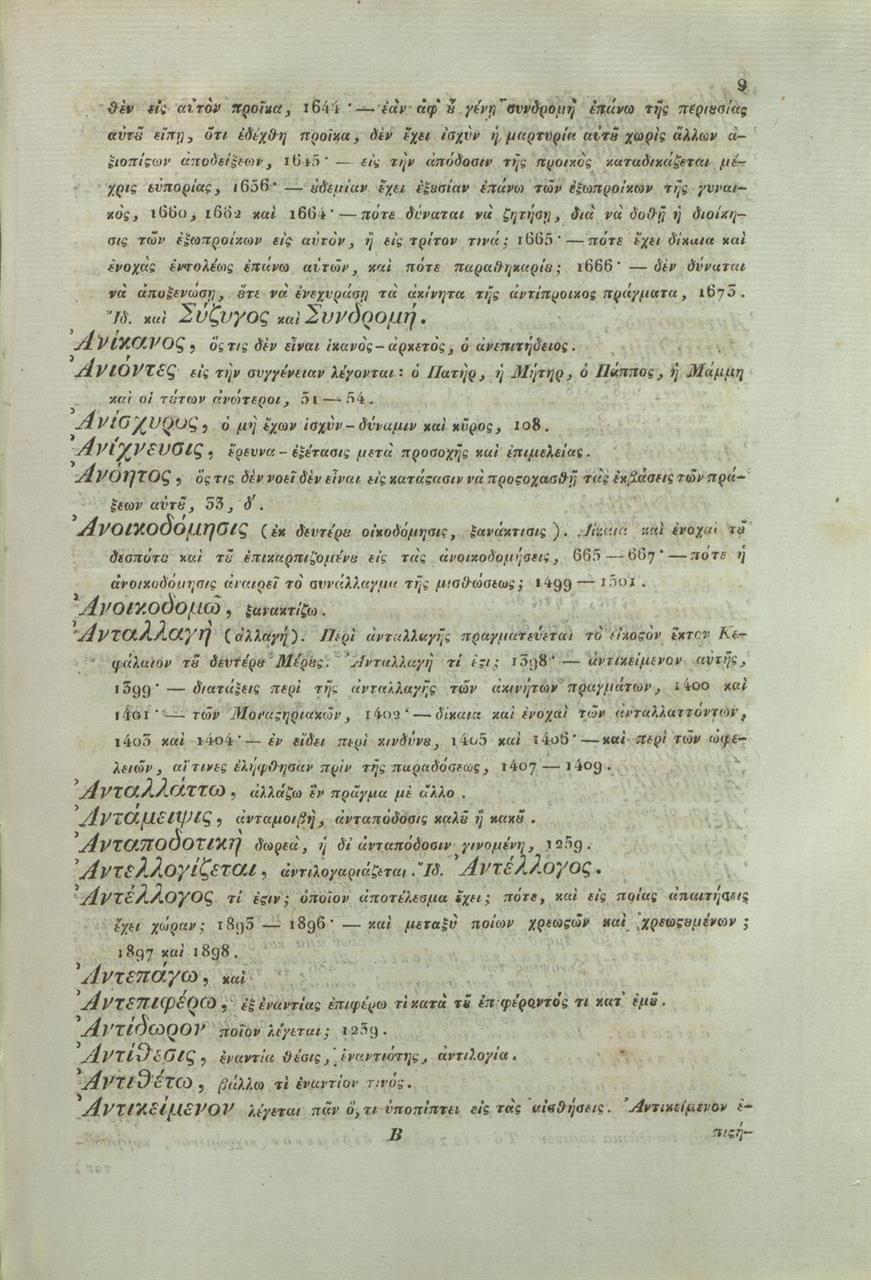 9
θὲν εἰς αὐτὸν προῖκα, 1644· — ἐὰν ἀφ' ȣ̃ γένῃ συνδρομὴ ἐπάνω τῆς περιȣσίας
αὐτȣ̃ εἴπῃ, ὅτι ἐδέχθη προῖκα, δὲν ἔχει ἰσχὺν ἡ μαρτυρία αὐτȣ̃ χωρὶς ἄλλων ἀ-
ξιοπίϛων ἀποδείξεων, 1645· — εἰς τὴν ἀπόδοσιν τῆς προικὸς καταδικάζεται μέ-
χρις εὐπορίας, 1656· — ȣ̓δεμίαν ἔχει ἐξȣσίαν ἐπάνω τῶν ἐξωπροίκων τῆς γυναι-
κὸς, 1660, 1662 καὶ 1664· — πότε δύναται νὰ ζητήσῃ, διὰ νὰ δοθῇ ἡ διοίκη-
σις τῶν ἐξωπροίκων εἰς αὐτὸν, ἢ εἰς τρίτον τινά; 1665· — πότε ἔχει δίκαια καὶ
ἐνοχὰς ἐντολέως ἐπάνω αὐτῶν, καὶ πότε παραθηκαρίȣ; 1666· — δὲν δύναται
νὰ ἀποξενώσῃ, ȣ̓́τε νὰ ἐνεχυράσῃ τὰ ἀκίνητα τῆς ἀντίπροικος πράγματα, 1673.
Ἴδ. καὶ Σύζυγος καὶ Συνδρομή.
Ἀνίκανος, ὅςτις δὲν εἶναι ἱκανὸς-ἀρκετὸς, ὁ ἀνεπιτήδειος.
Ἀνιόντες εἰς τὴν συγγένειαν λέγονται: ὁ Πατὴρ, ἡ Μήτηρ, ὁ Πάππος, ἡ Μάμμη
καὶ οἱ τȣ́των ἀνώτεροι, 51 — 54.
Ἀνίσχυρος, ὁ μὴ ἔχων ἰσχὺν-δύναμιν καὶ κῦρος, 108.
Ἀνίχνευσις, ἔρευνα-ἐξέτασις μετὰ προσοχῆς καὶ ἐπιμελείας.
Ἀνόητος, ὅςτις δὲν νοεῖ δὲν εἶναι εἰς κατάϛασιν νὰ προςοχασθῇ τὰς ἐκβάσεις τῶν πρά-
ξεων αὐτȣ̃, 33, δ'.
Ἀνοικοδόμησις (ἐκ δευτέρȣ οἰκοδόμησις, ξανάκτισις). Δίκαια καὶ ἐνοχαὶ τȣ̃
δεσπότȣ καὶ τȣ̃ ἐπικαρπιζομένȣ εἰς τὰς ἀνοικοδομήσεις, 665 — 667· — πότε ἡ
ἀνοικοδόμησις ἀναιρεῖ τὸ συνάλλαγμα τῆς μισθώσεως; 1499 — 1501.
Ἀνοικοδομῶ, ξανακτίζω.
Ἀνταλλαγὴ (ἀλλαγή). Περὶ ἀνταλλαγῆς πραγματεύεται τὸ εἰκοϛὸν ἕκτον Κε-
φάλαιον τȣ̃ δευτέρȣ Μέρȣς. Ἀνταλλαγὴ τί ἐϛι; 1398· — ἀντικείμενον αὐτῆς,
1399· — διατάξεις περὶ τῆς ἀνταλλαγῆς τῶν ἀκινήτων πραγμάτων, 1400 καὶ
1401· — τῶν Μοναϛηριακῶν, 1402· — δίκαια καὶ ἐνοχαὶ τῶν ἀνταλλαττόντων,
1403 καὶ 1404· — ἐν εἴδει περὶ κινδύνȣ, 1405 καὶ 1406· — καὶ περὶ τῶν ὠφε-
λειῶν, αἵτινες ἐλήφθησαν πρὶν τῆς παραδόσεως, 1407 — 1409.
Ἀνταλλάττω, ἀλλάζω ἓν πρᾶγμα μὲ ἄλλο.
Ἀντάμειψις, ἀνταμοιβὴ, ἀνταπόδοσις καλȣ̃ ἢ κακȣ̃.
Ἀνταποδοτικὴ δωρεὰ, ἡ δι' ἀνταπόδοσιν γινομένη, 1259.
Ἀντελλογίζεται, ἀντιλογαριάζεται. Ἴδ. Ἀντέλλογος.
Ἀντέλλογος τί ἐϛιν; ὁποῖον ἀποτέλεσμα ἔχει; πότε, καὶ εἰς ποίας ἀπαιτήσεις
ἔχει χώραν; 1893 — 1896· — καὶ μεταξὺ ποίων χρεωϛῶν καὶ χρεωϛȣμένων;
1897 καὶ 1898.
Ἀντεπάγω, καὶ
Ἀντεπιφέρω, ἐξ ἐναντίας ἐπιφέρω τὶ κατὰ τȣ̃ ἐπιφέροντός τι κατ' ἐμȣ̃.
Ἀντίδωρον ποῖον λέγεται; 1259.
Ἀντίθεσις, ἐναντία θέσις, ἐναντιότης, ἀντιλογία.
Ἀντιθέτω, βάλλω τὶ ἐναντίον τινός.
Ἀντικείμενον λέγεται πᾶν ὅ,τι ὑποπίπτει εἰς τὰς αἰσθήσεις. Ἀντικείμενον ἐ-
B πιϛή-